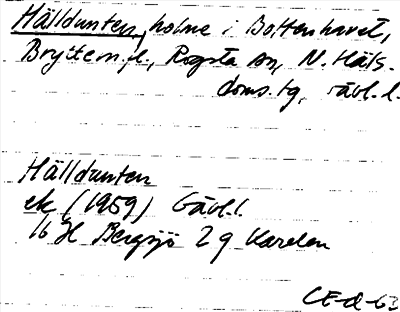 Hälldunten, holme i Bottenhavet,
Bryttern.fl., Rogsta sn, N. Häls.
doms.tg, Gävl.l.
Hälldunten
ek (1959) Gävl.l.
16 H Bergsjö 2 g Karelen
CE-d-63